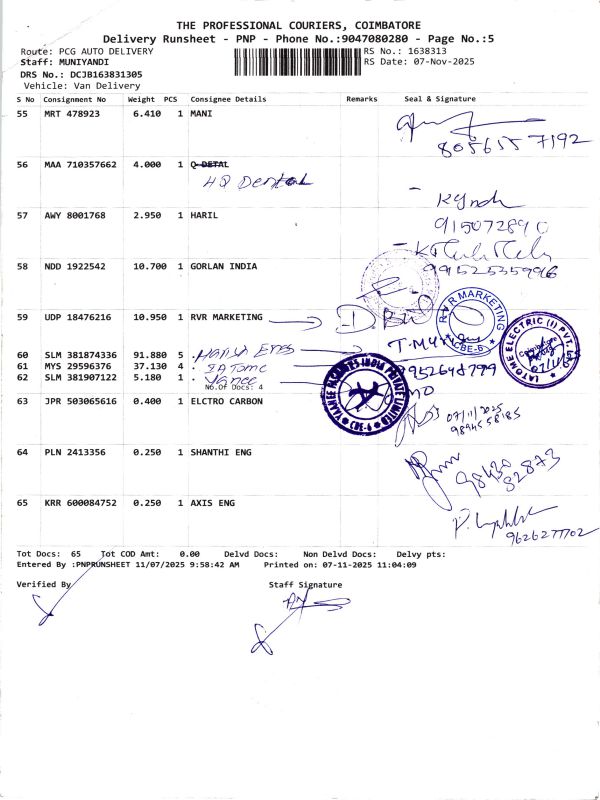 THE PROFESSIONAL COURIERS, COIMBATORE
Delivery Runsheet - PNP - Phone No.:9047080280 - Page No.:5
Route: PCG AUTO DELIVERY RS No.: 1638313
Staff: MUNIYANDI RS Date: 07-Nov-2025
DRS No.: DCJB163831305
Vehicle: Van Delivery
S No Consignment No Weight PCS Consignee Details Remarks Seal & Signature
55 MRT 478923 6.410 1 MANI
8056557192
56 MAA 710357662 4.000 1 Q DETAL
HQ Dental
57 AWY 8001768 2.950 1 HARIL
9150728910
58 NDD 1922542 10.700 1 GORLAN INDIA
9952535996
59 UDP 18476216 10.950 1 RVR MARKETING
RVR MARKETING
CBE-6
LATOME ELECTRIC (I) PVT.
60 SLM 381874336 91.880 5
61 MYS 29596376 37.130 4
62 SLM 381907122 5.180 1 Yanee
No.Of Docs: 4
YAANEE PACKAGES INDIA PRIVATE LIMITED
CBE-6
63 JPR 503065616 0.400 1 ELCTRO CARBON
07/11/2025
9894558185
64 PLN 2413356 0.250 1 SHANTHI ENG
98430
82873
65 KRR 600084752 0.250 1 AXIS ENG
9626277702
Tot Docs: 65 Tot COD Amt: 0.00 Delvd Docs: Non Delvd Docs: Delvy pts:
Entered By :PNPRUNSHEET 11/07/2025 9:58:42 AM Printed on: 07-11-2025 11:04:09
Verified By Staff Signature